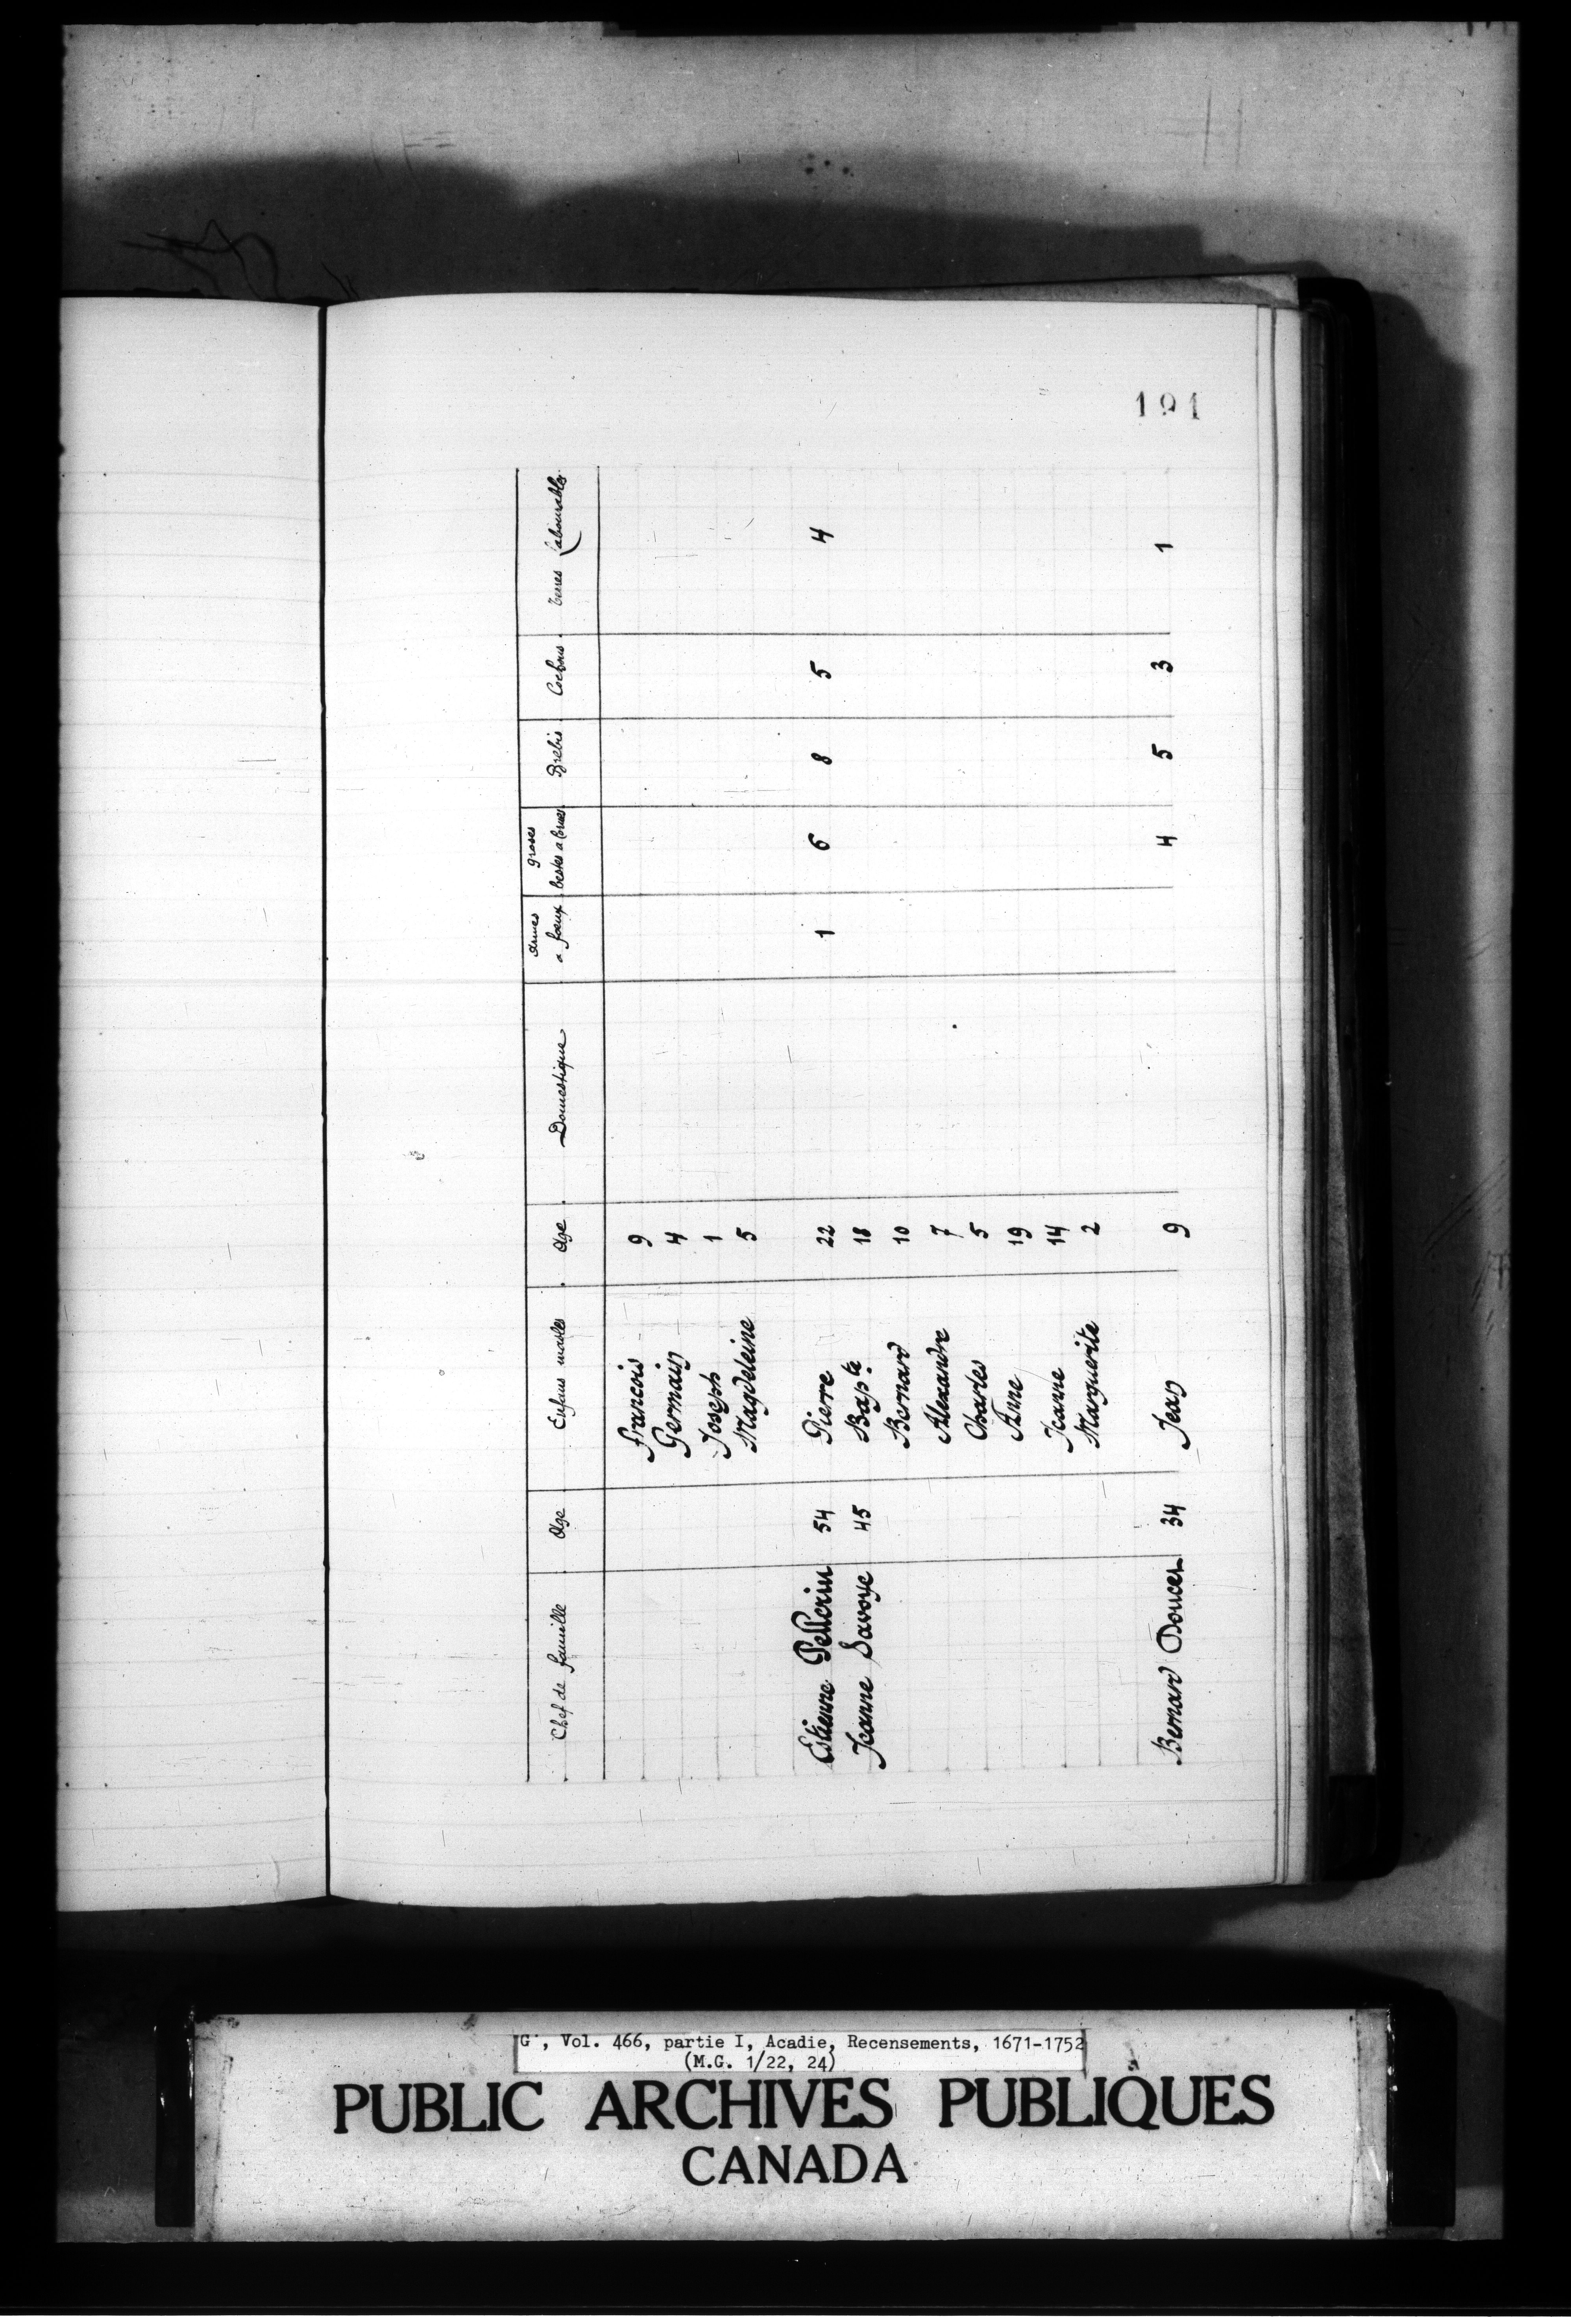 191
Chef de famille Age Enfans masles Age Domestique Armes a feux groses bestes a Cornes Brebis Cochons terres labourables
francois 9
Germain 4
Joseph 1
Magdeleine 5
Estienne Pellerin 54 Pierre 22 1 6 8 5 4
Jeanne Savoye 45 Bapte 18
Bernard 10
Alexandre 7
Charles 5
Anne 19
Jeanne 14
Marguerite 2
Bernard Doucet 34 Jean 9 4 5 3 1
G', Vol. 466, partie I, Acadie, Recensements, 1671-1752
(M.G. 1/22, 24)
PUBLIC ARCHIVES PUBLIQUES
CANADA